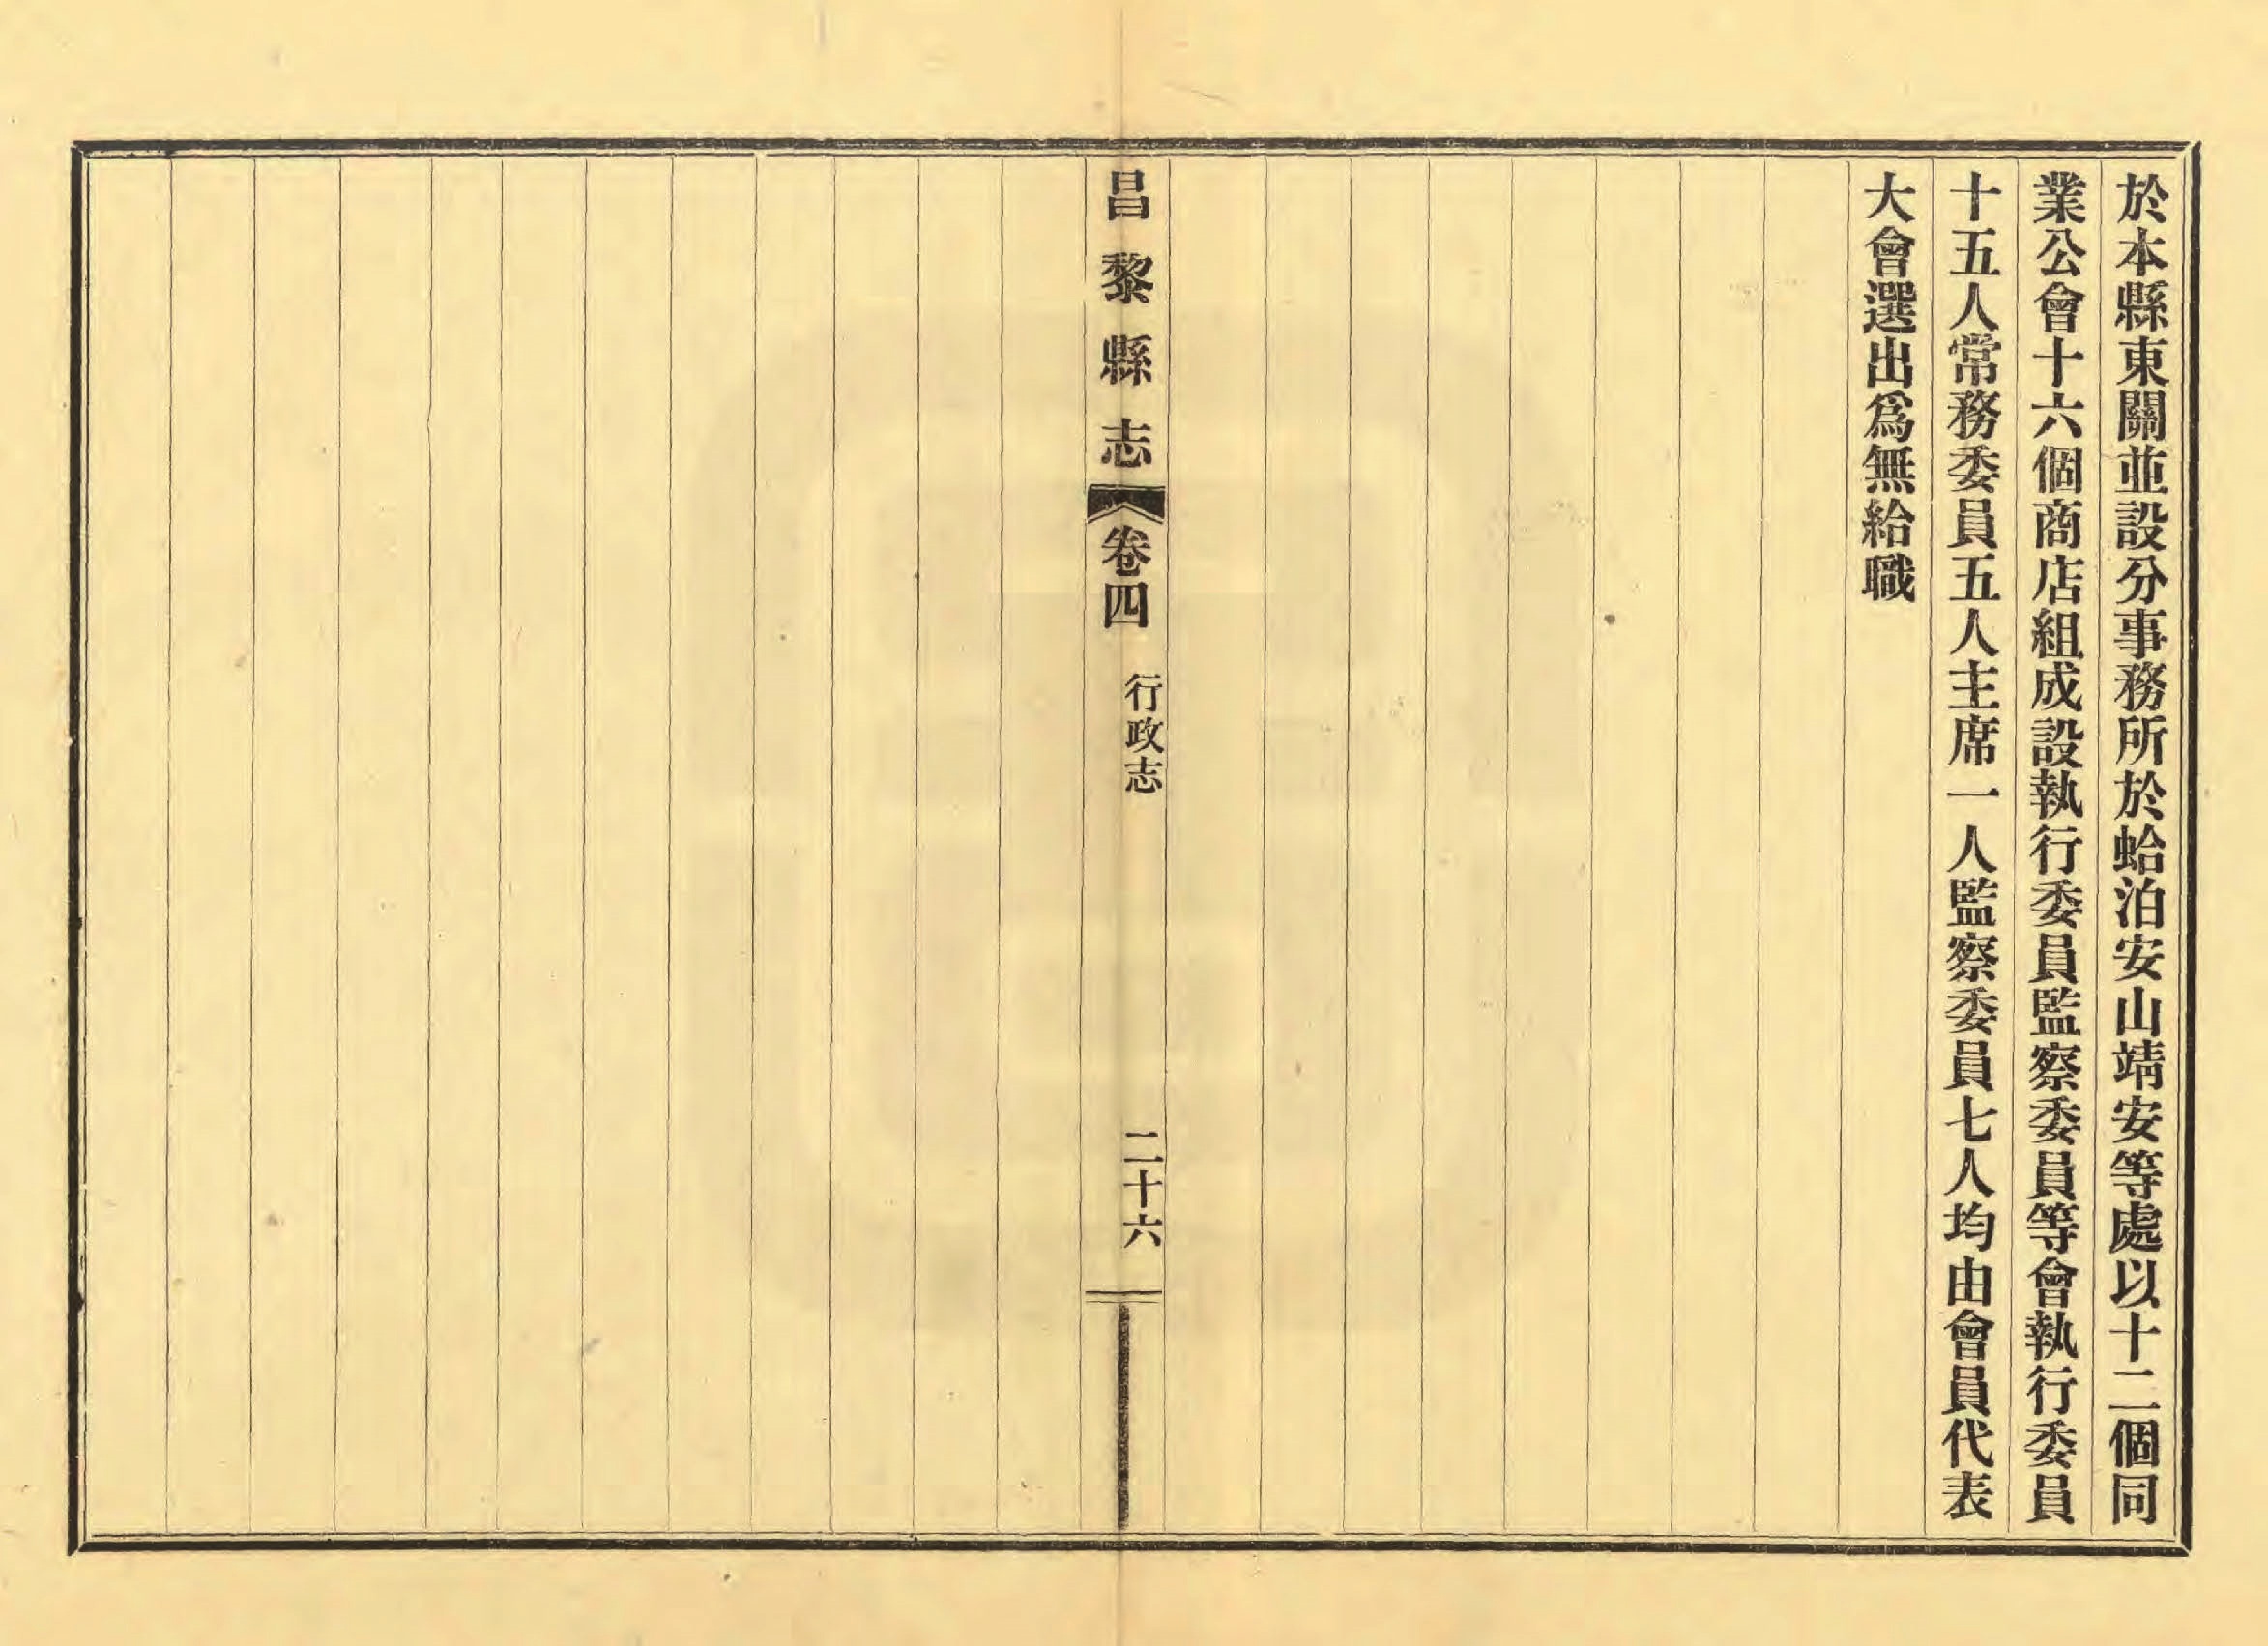 於本縣東關並設分事務所於蛤泊安山靖安等處以十二個同
業公會十六個商店組成設執行委員監察委員等會執行委員
十五人常務委員五人主席一人監察委員七人均由會員代表
大會選出爲無給職
昌黎縣志
卷四
行政志
二十六